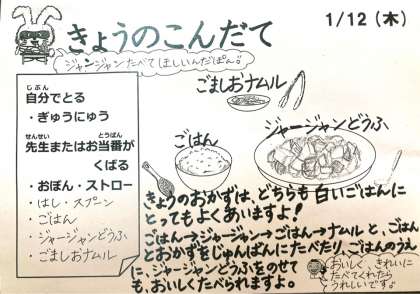 1/12（木）
きょうのこんだて
ジャンジャンたべてほしいんだぱん。
自分でとる
・ぎゅうにゅう
先生またはお当番が
くばる
・おぼん・ストロー
・はし・スプーン
・ごはん
・ジャージャンどうふ
・ごましおナムル
ごましおナムル
ごはん
ジャージャンどうふ
きょうのおかずは、どちらも白いごはんに
とってもよくあいますよ！
ごはん→ジャージャン→ごはん→ナムル と、ごはん
とおかずをじゅんばんにたべたり、ごはんのうえ
に、ジャージャンどうふをのせて
も、おいしくたべられますよ。
おいしく、きれいに
たべてくれたら
うれしいです。